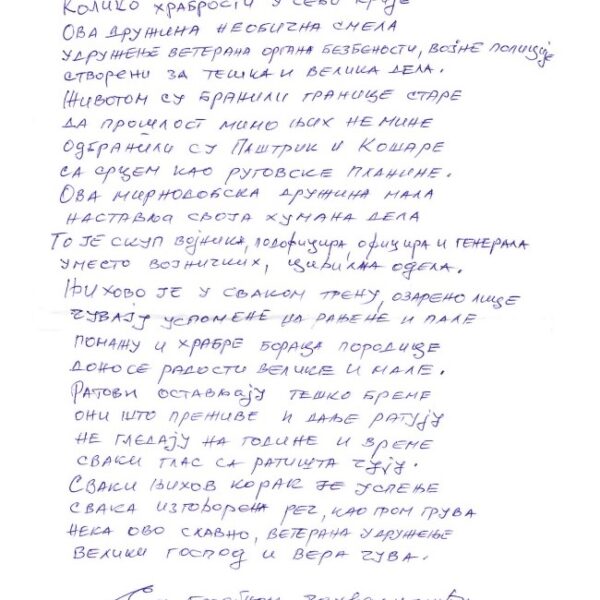 Колико храбрости у себи крије
Ова дружина необична смела
удружење ветерана органа безбености, војне полиције
створени за тешка и велика дела.
Животом су бранили границе старе
да прошлост мимо њих не мине
одбранили су Паштрик и Кошаре
са срцем као Руговске планине.
Ова мирнодобска дружина мала
наставља своја хумана дела
То је скуп војника, подофицира, официра и генерала
уместо војничких, цивилна одела.
Њихово је у сваком трену, озарено лице
чувају успомене на рањене и пале
помажу и храбре бораца породице
доносе радости велике и мале.
Ратови остављају тешко бреме
они што преживе и даље ратују
не гледају на године и време
сваки глас са ратишта чују.
Сваки њихов корак је успење
свака изговорена реч, као гром грува
нека ово славно, ветерана удружење
велики господ и вера чува.